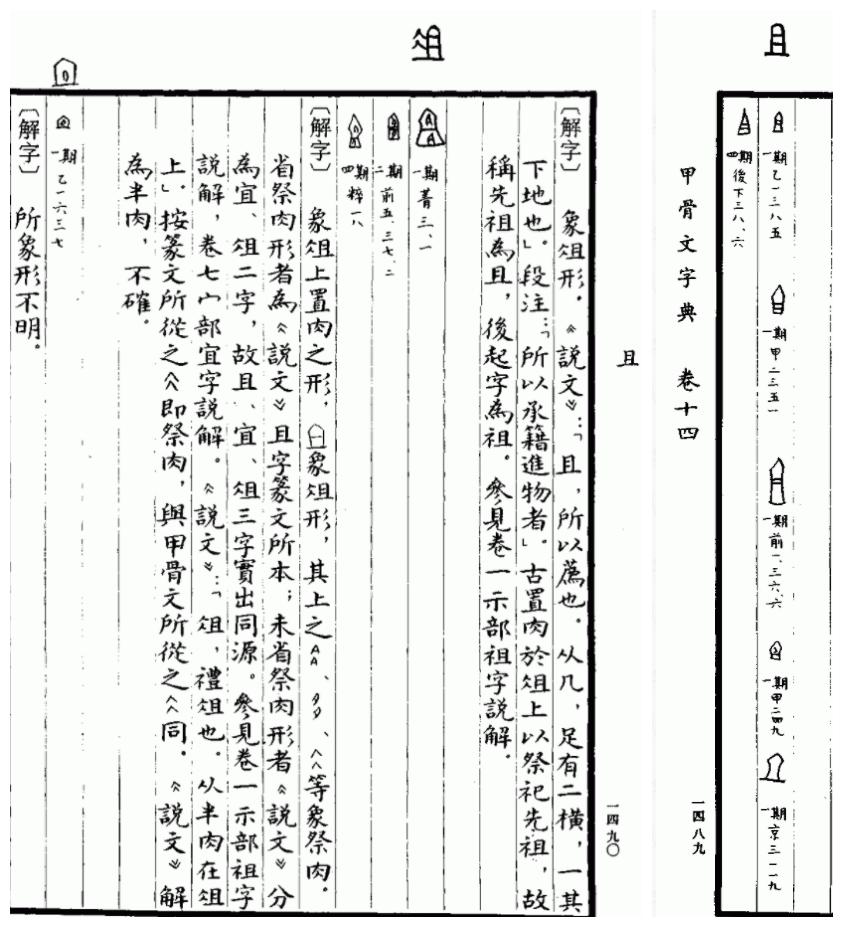 且
一期乙一三八五
一期甲二三五一
一期前一、三六、六
一期甲二四九
一期京三一一九
四期後下三八、六
甲骨文字典 卷十四
一四八九
且
一四九〇
〔解字〕 象俎形。《說文》：「且，所以薦也。从几，足有二橫，一其
下地也」。段注：「所以承籍進物者」。古置肉於俎上以祭祀先祖，故
稱先祖為且，後起字為祖。參見卷一示部祖字說解。
俎
一期菁三、一
二期前五、三七、二
四期粹一八
〔解字〕 象俎上置肉之形，象俎形，其上之、、等象祭肉。
省祭肉形者為《說文》且字篆文所本；未省祭肉形者《說文》分
為宜、俎二字，故且、宜、俎三字實出同源。參見卷一示部祖字
說解，卷七宀部宜字說解。《說文》：「俎，禮俎也。从半肉在俎
上」。按篆文所從之仌即祭肉，與甲骨文所從之仌同。《說文》解
為半肉，不確。
一期乙一六三七
〔解字〕 所象形不明。